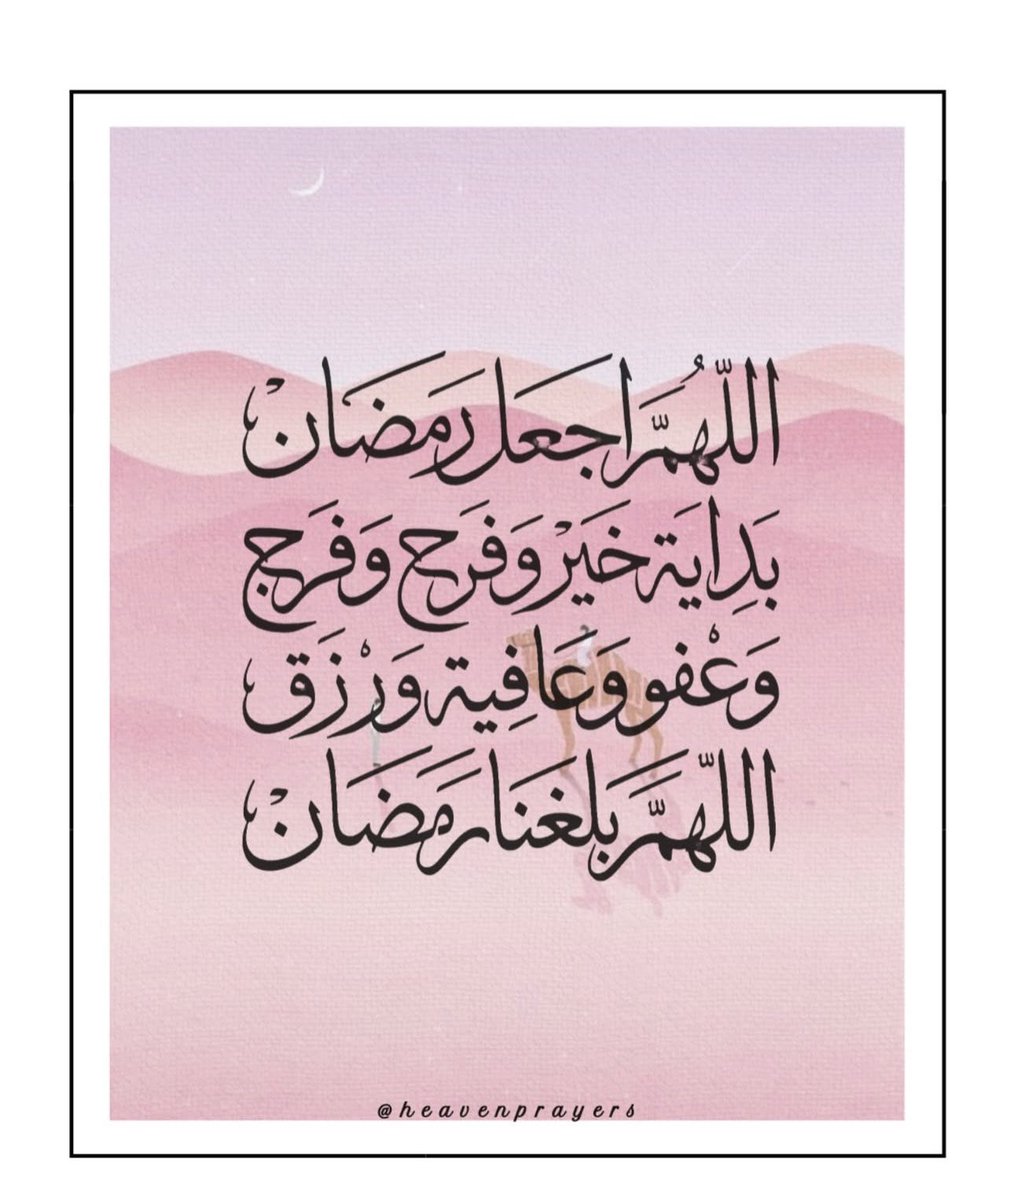 اللَّهُمَّ اجعل رَمَضَانْ
بَدِايَة خَيَرْ وَفَرَح وَفَرَج
وَعْفو وَعَافِية وَرْزَق
اللَّهمَّ بَلغَنَا رَمَضَانْ
@heavenprayers